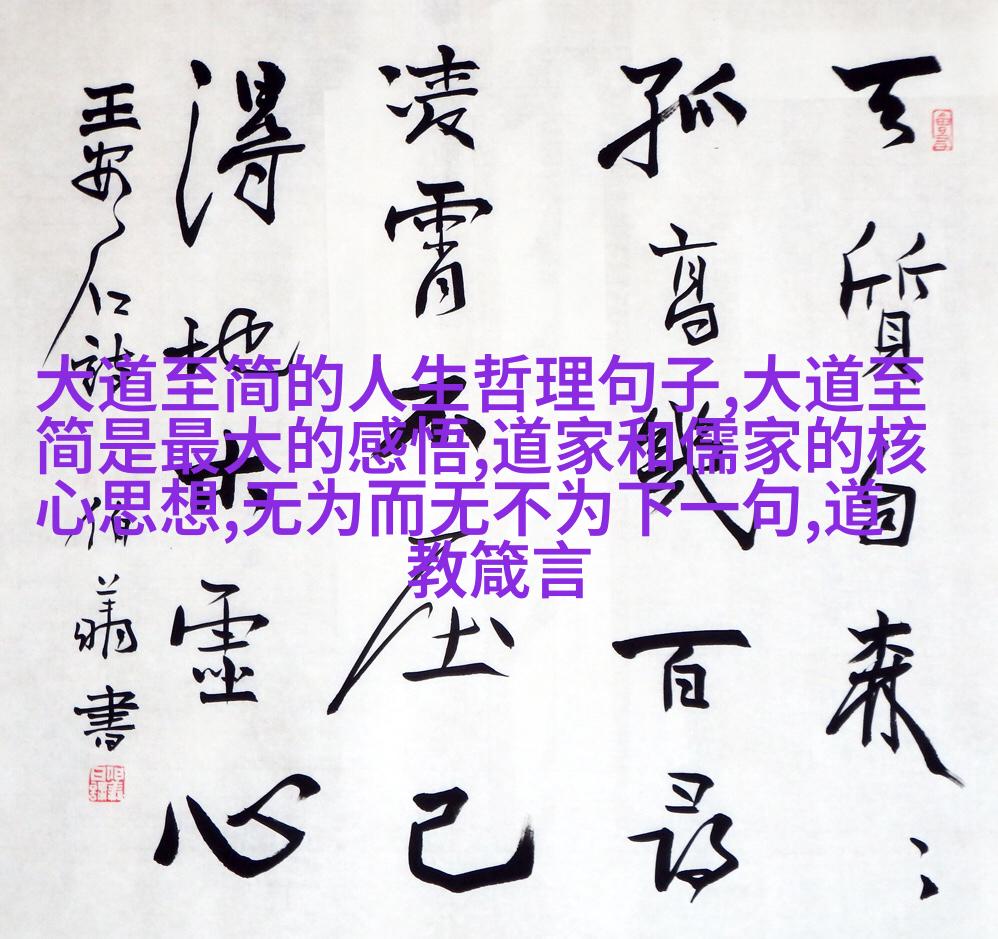 天質自森〻
孤高幾百尋
凌霄不屈己
得地本虛心
王安石詩 書
大道至简的人生哲理句子,大道至
简是最大的感悟,道家和儒家的核
心思想,无为而无不为下一句,道
教箴言